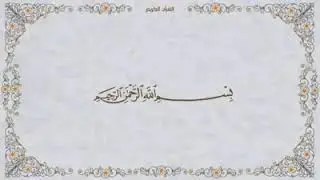 القرآن الكريم
بِسْمِ ٱللَّهِ ٱلرَّحْمَٰنِ ٱلرَّحِيمِ